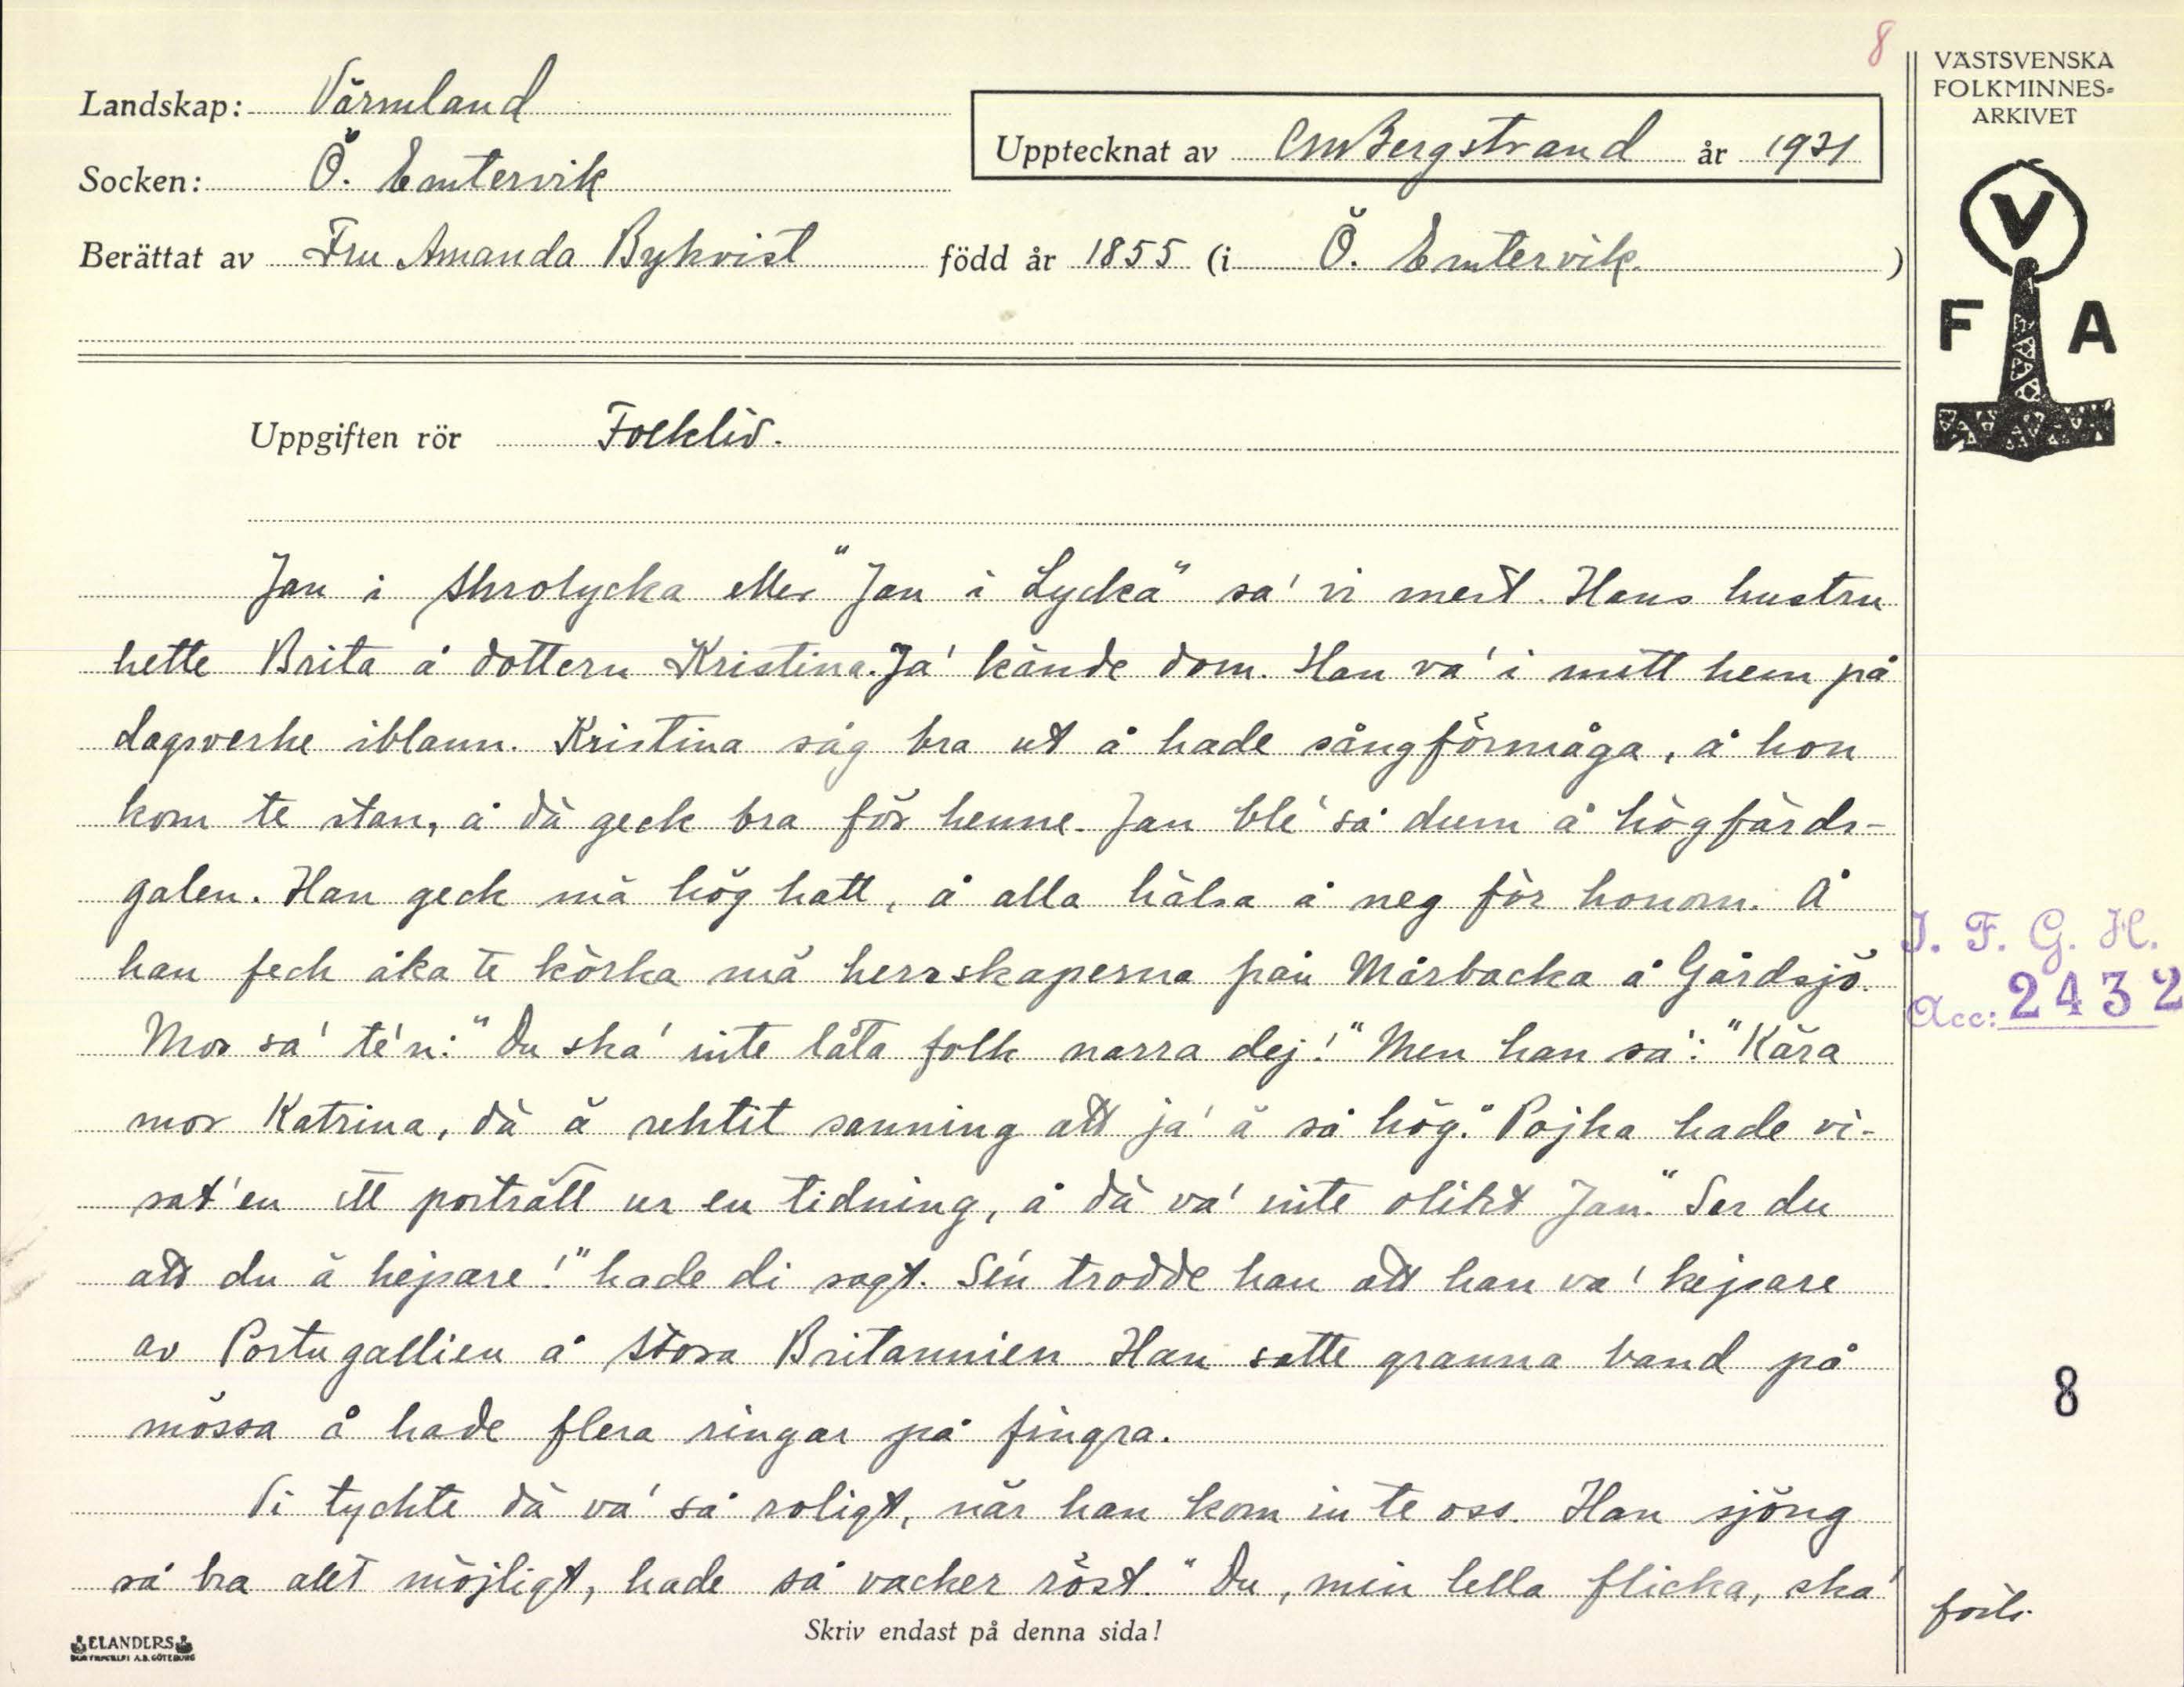 8
VÄSTSVENSKA
FOLKMINNES-
ARKIVET
Landskap: Värmland
Upptecknat av CMBergstrand år 1931
Socken: Ö. Emtervik
Berättat av Fru Amanda Bykvist född år 1855 (i Ö. Emtervik.)
V
F A
Uppgiften rör Folkliv.
Jan i Skrolycka eller "Jan i Lycka" sa' vi mest. Hans hustru
hette Brita å dottern Kristina. Ja' kände dom. Han va' i mitt hem på
dagsverke iblann. Kristina såg bra ut å hade sångförmåga, å hon
kom te stan, å dä geck bra för henne. Jan ble' så dum å högfärds-
galen. Han geck mä hög hatt, å alla hälsa å neg för honom. Å
han feck åka te körka mä herrskaperna från Mårbacka å Gårdsjö.
Mor sa' te'n: "Du ska' inte låta folk narra dej!" Men han sa': "Kära
mor Katrina, dä ä rektit sanning att ja' ä så hög." Pojka hade vi-
sat'en ett porträtt ur en tidning, å dä va' inte olikt Jan. "Ser du
att du ä kejsare!" hade di sagt. Se'n trodde han att han va' kejsare
av Portugallien å Stora Britannien. Han satte granna band på
mössa å hade flera ringar på fingra.
Vi tyckte dä va' så roligt, när han kom in te oss. Han sjöng
så bra allt möjligt, hade så vacker röst. "Du, min lella flicka, ska'
I. F. G. H.
Acc: 2432
8
forts.
Skriv endast på denna sida!
ELANDERS
BOKTRYCKERI A.B. GÖTEBORG